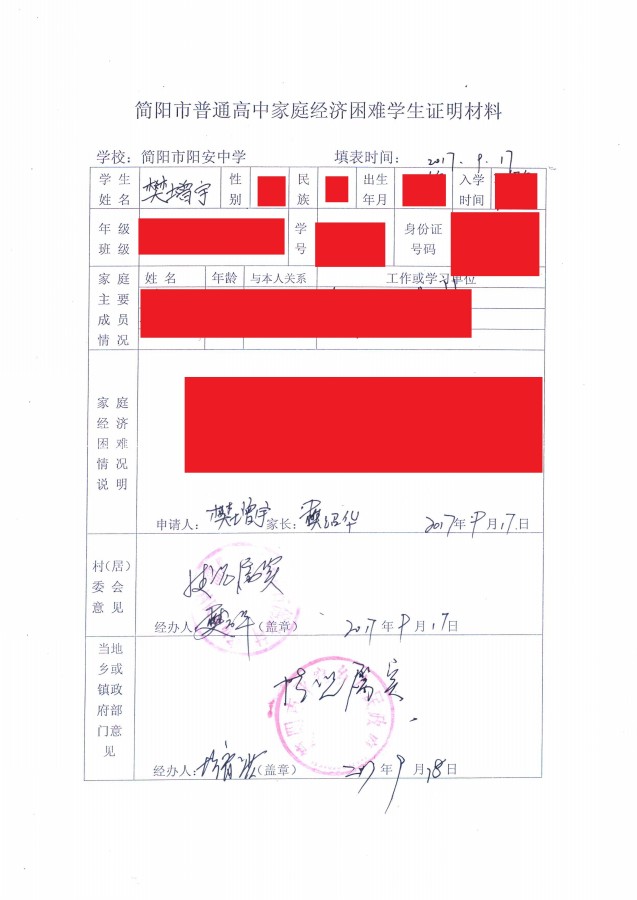 简阳市普通高中家庭经济困难学生证明材料
学校：简阳市阳安中学 填表时间：2017.9.17
学生姓名 樊增宇 性别 民族 出生年月 入学时间
年级班级 学号 身份证号码
家庭主要成员情况 姓名 年龄 与本人关系 工作或学习单位
家庭经济困难情况说明
申请人：樊增宇 家长：樊绍华 2017年9月17日
村(居)委会意见
情况属实
经办人： (盖章) 2017年9月17日
当地乡或镇政府部门意见
情况属实
经办人： (盖章) 2017年9月18日